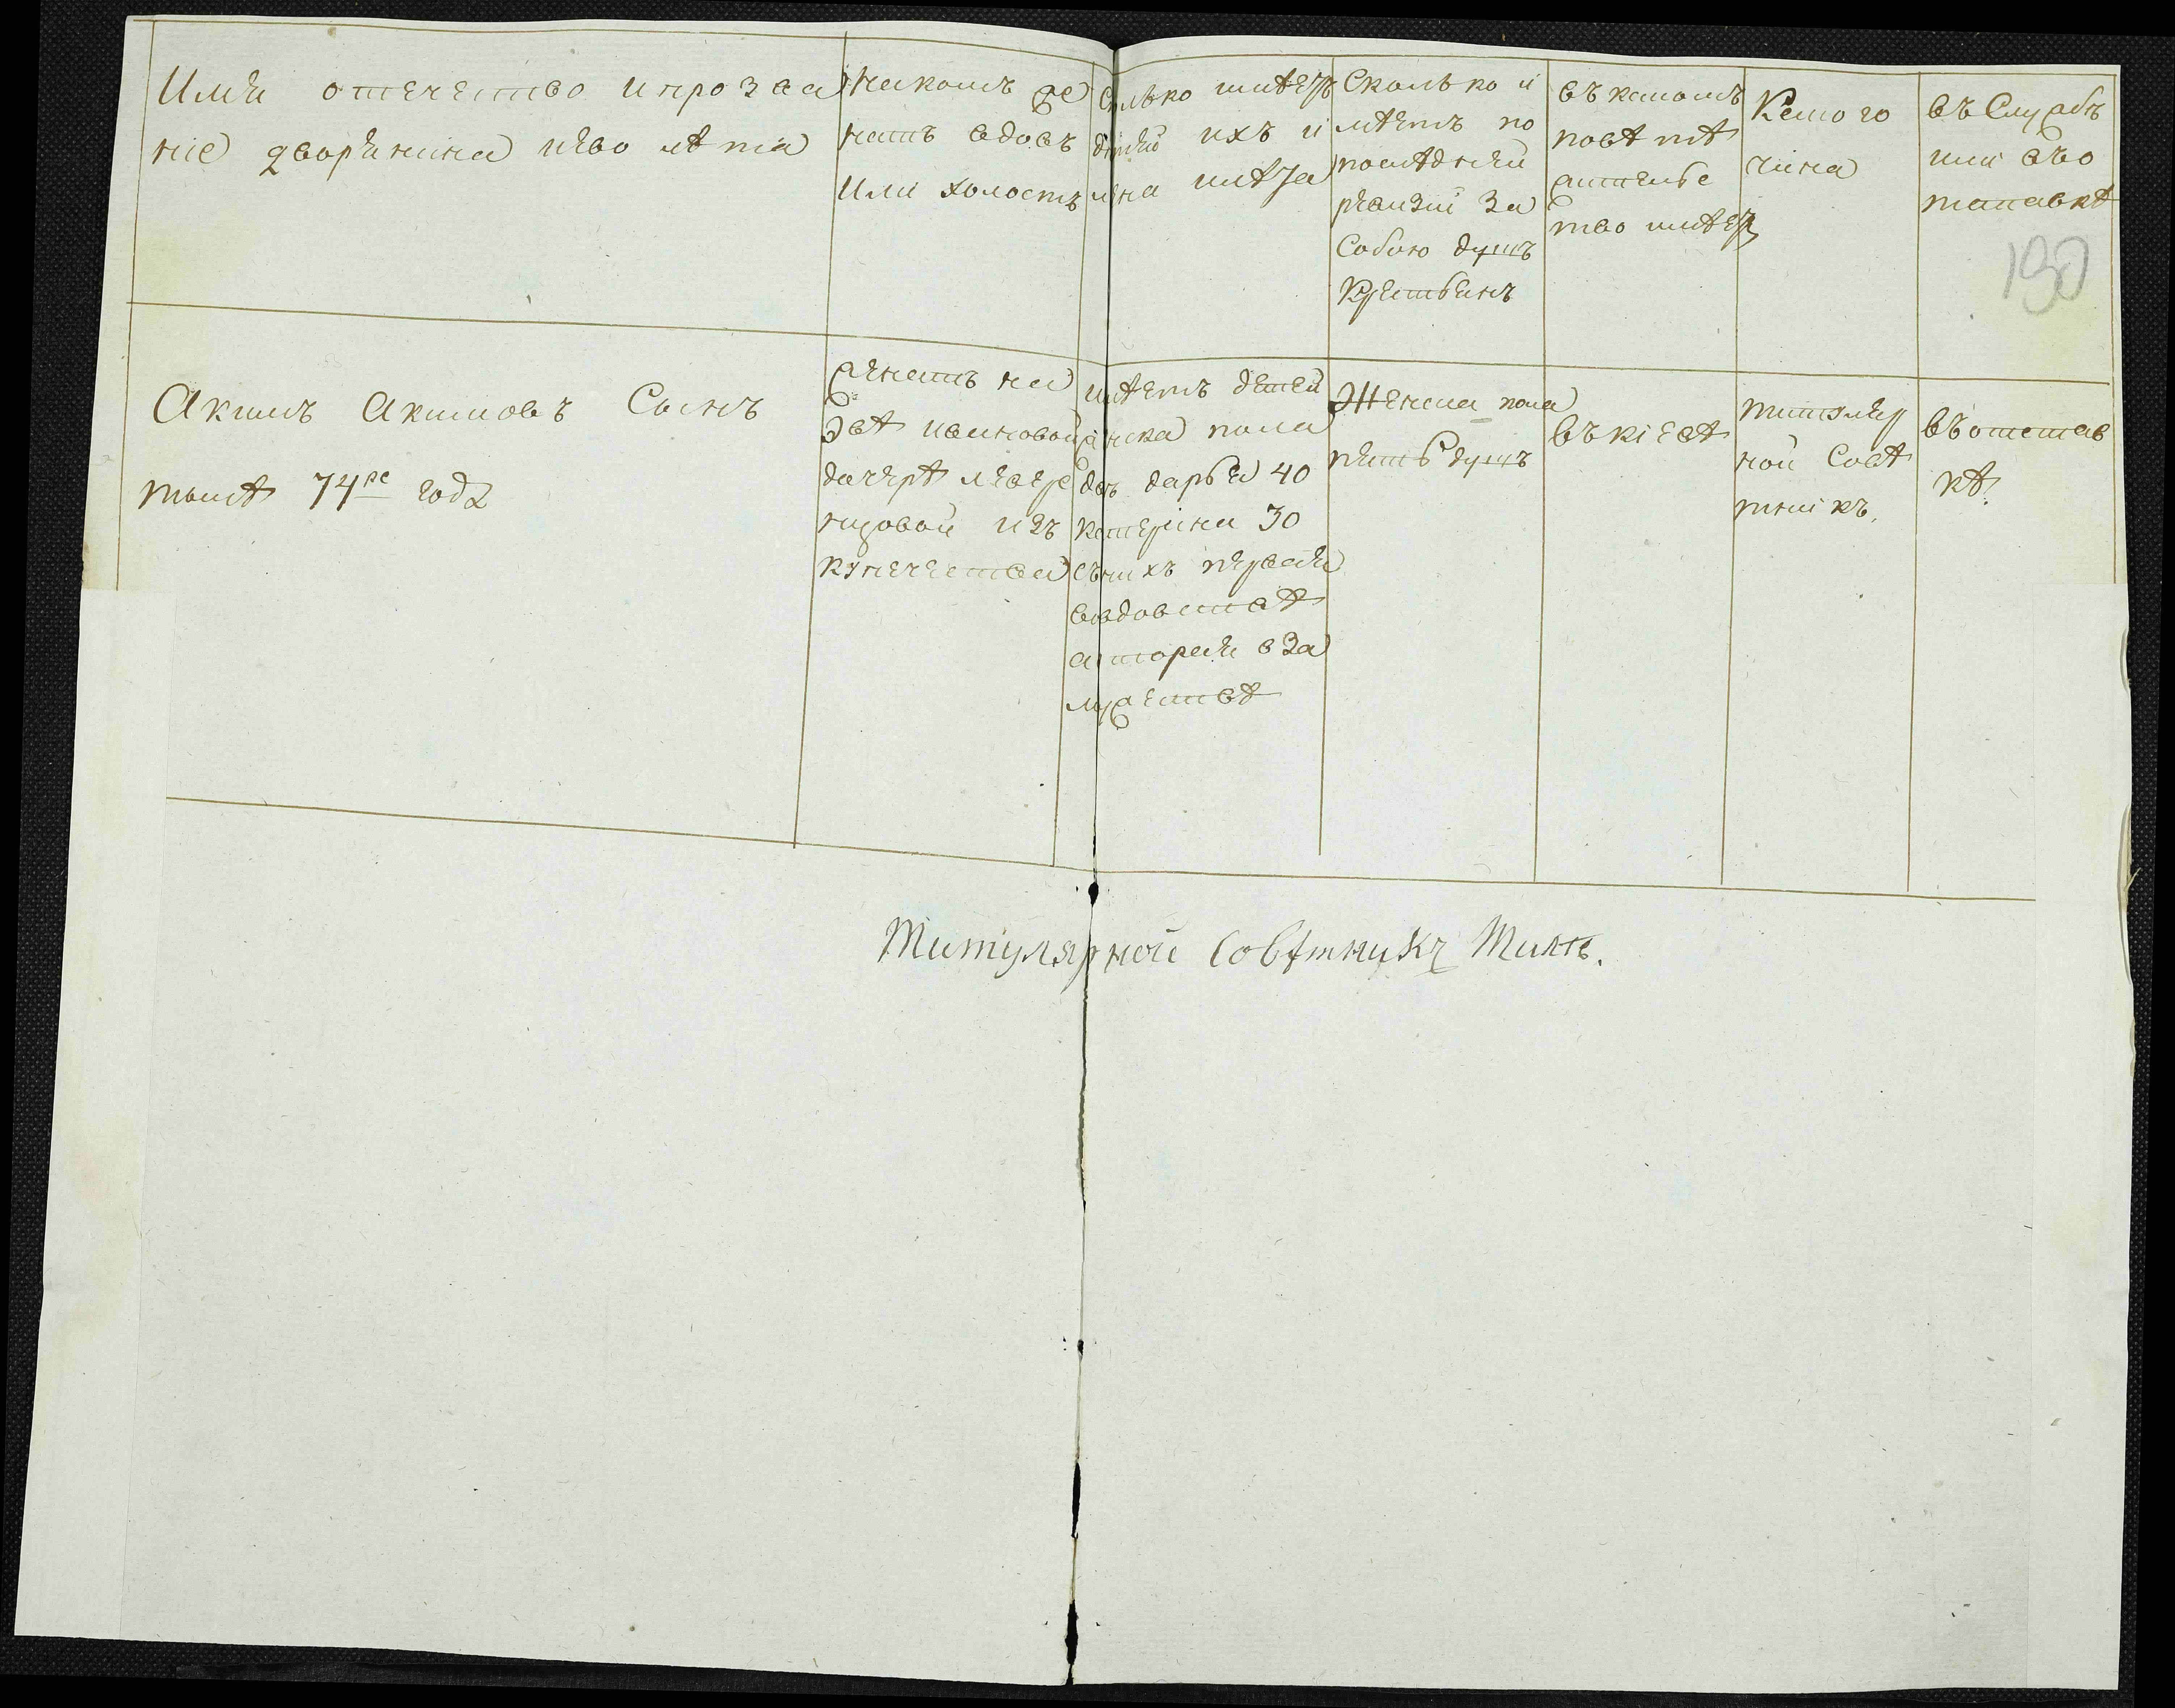 Имя отечество и прозва
ние дворянина и ево лѣта
На комъ же
натъ вдовъ
или холостъ
Сколько имѣетъ
дѣтей ихъ и
мена и лѣта
Сколько и
мѣетъ по
послѣдней
ревизии за
собою душъ
крестьянъ
въ какомъ
повѣтѣ
жительс
тво имѣетъ
Какого
чина
въ службѣ
или въ о
тставкѣ
190
Акимъ Акимовъ Сынъ
74ре года
женатъ на
Эвѣ Ивановой
дочерѣ
изъ
купечества
имѣетъ детей
женска пола
двѣ Дарья 40
Катерина 30
съ нихъ первая
въ вдовствѣ
а вторая в за
мужествѣ
Женска пола
пять душъ
въ Кіевѣ
титуляр
ной Совѣ
тникъ.
въ отстав
кѣ.
Титулярной Совѣтникъ